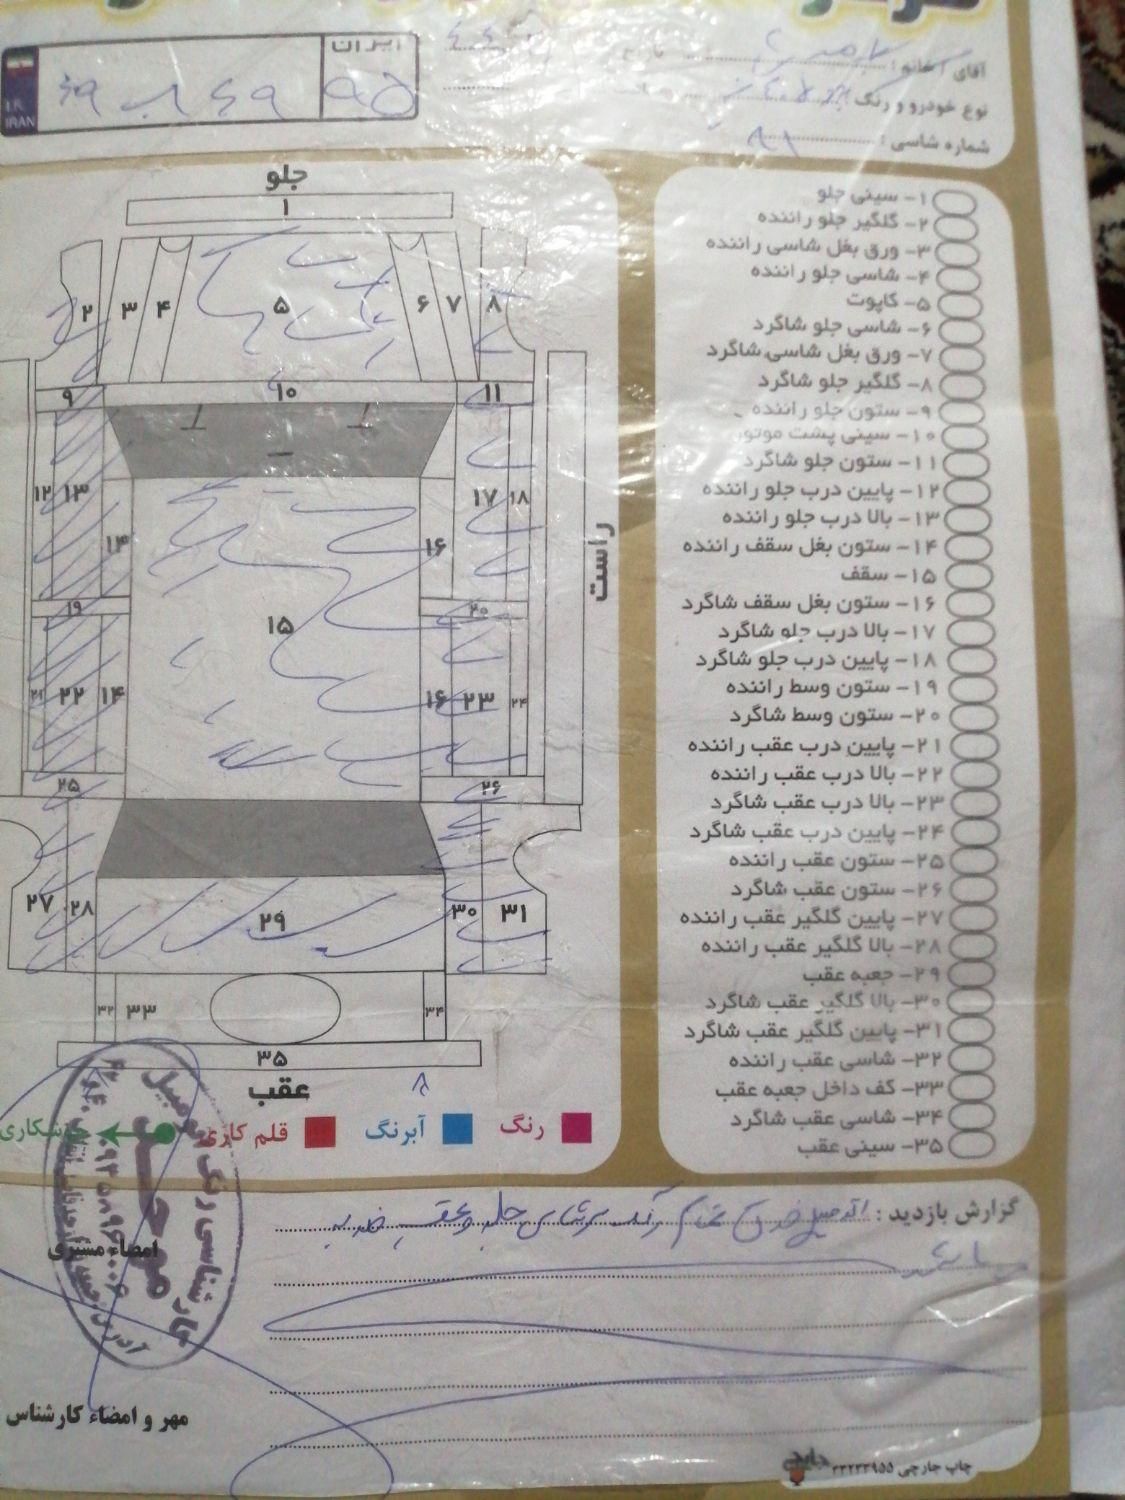 ایران
I.R.
IRAN
۴۹ ب ۶۴۹ ۹۵
آقای / خانم :
تاریخ
نوع خودرو و رنگ
شماره شاسی :
جلو
۱
۲ ۳ ۴ ۵ ۶ ۷ ۸
۹ ۱۰ ۱۱
۱۲ ۱۳ ۱۴ ۱۶ ۱۷ ۱۸
راست
۱۹ ۲۰
۱۵
۲۱ ۲۲ ۱۴ ۱۶ ۲۳ ۲۴
۲۵ ۲۶
۲۷ ۲۸ ۲۹ ۳۰ ۳۱
۳۲ ۳۳ ۳۴
۳۵
عقب
رنگ
آبرنگ
قلم کاری
۱- سینی جلو
۲- گلگیر جلو راننده
۳- ورق بغل شاسی راننده
۴- شاسی جلو راننده
۵- کاپوت
۶- شاسی جلو شاگرد
۷- ورق بغل شاسی شاگرد
۸- گلگیر جلو شاگرد
۹- ستون جلو راننده
۱۰- سینی پشت موتور
۱۱- ستون جلو شاگرد
۱۲- پایین درب جلو راننده
۱۳- بالا درب جلو راننده
۱۴- ستون بغل سقف راننده
۱۵- سقف
۱۶- ستون بغل سقف شاگرد
۱۷- بالا درب جلو شاگرد
۱۸- پایین درب جلو شاگرد
۱۹- ستون وسط راننده
۲۰- ستون وسط شاگرد
۲۱- پایین درب عقب راننده
۲۲- بالا درب عقب راننده
۲۳- بالا درب عقب شاگرد
۲۴- پایین درب عقب شاگرد
۲۵- ستون عقب راننده
۲۶- ستون عقب شاگرد
۲۷- پایین گلگیر عقب راننده
۲۸- بالا گلگیر عقب راننده
۲۹- جعبه عقب
۳۰- بالا گلگیر عقب شاگرد
۳۱- پایین گلگیر عقب شاگرد
۳۲- شاسی عقب راننده
۳۳- کف داخل جعبه عقب
۳۴- شاسی عقب شاگرد
۳۵- سینی عقب
گزارش بازدید : اتومبیل فوق تمام رنگ جلو و عقب
امضاء مشتری
کارشناسی رنگ
مهر و امضاء کارشناس
چاپ جارچی ۳۳۲۳۳۹۵۵